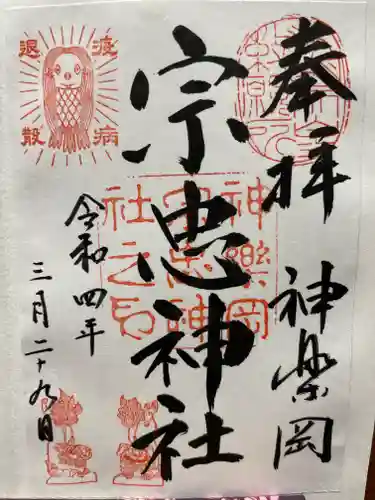 奉拝 神楽岡
宗忠神社
令和四年
三月二十九日
疫病
退散
神樂岡
宗忠神
社之印